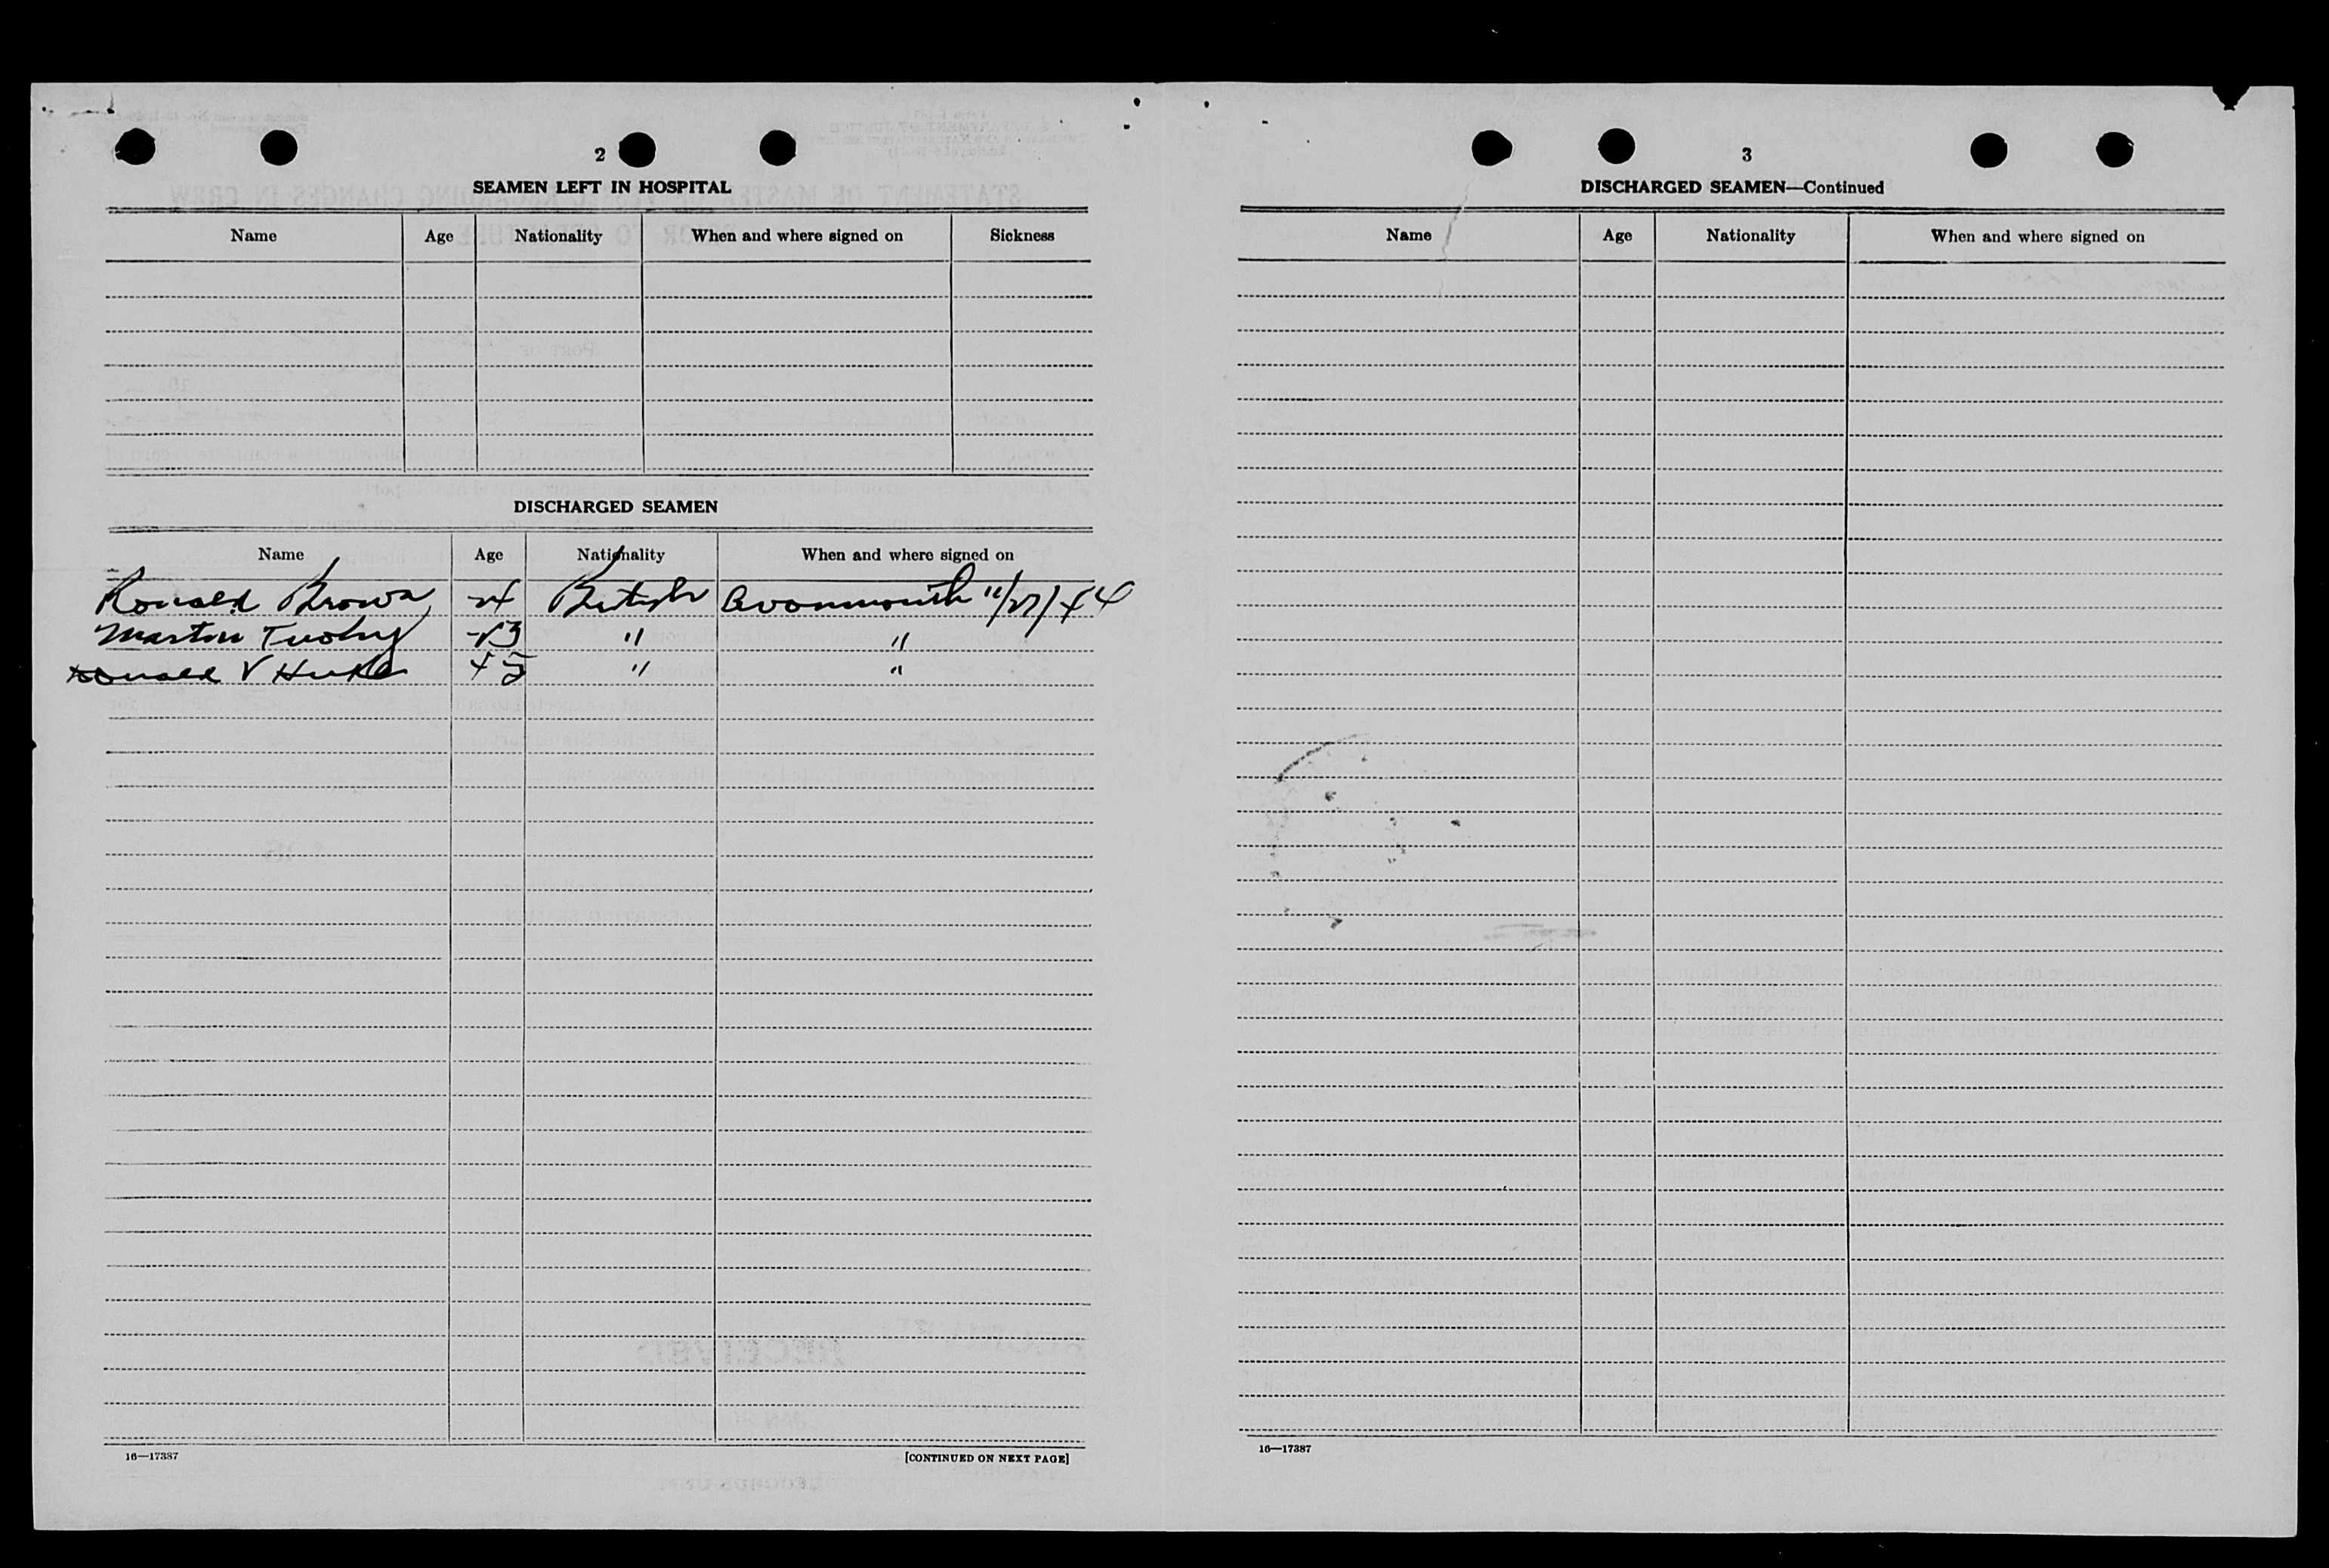 2
SEAMEN LEFT IN HOSPITAL
Name Age Nationality When and where signed on Sickness
DISCHARGED SEAMEN
Name Age Nationality When and where signed on
Ronald Brown British Avonmouth 11/27/44
Martin Tuohy " "
Ronald V 45 " "
16—17387
[CONTINUED ON NEXT PAGE]
3
DISCHARGED SEAMEN—Continued
Name Age Nationality When and where signed on
16—17387